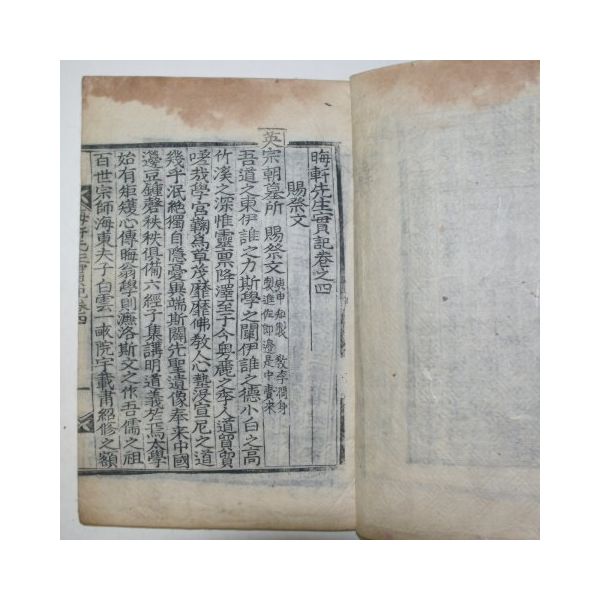 晦軒先生實記卷之四
賜祭文
英宗朝墓所賜祭文 庚申知製敎李潤身
製進佐郎邊是中賫來
吾道之東伊誰之力斯學之闡伊誰之德小白之高
竹溪之深惟靈稟降澤至于今奧麗之季人道貿貿
嗟哉學宮鞠爲草茂靡靡佛敎人心蟄沒宣尼之道
幾乎泯絶獨自隱憂異端斯闢先聖遺像奉來中國
籩豆鍾磬秩秩俱備六經子集講明道義於焉太學
始有矩矱心傳晦翁學則濂洛斯文之作吾儒之祖
百世宗師海東夫子白雲一畝院宇載肅紹修之額